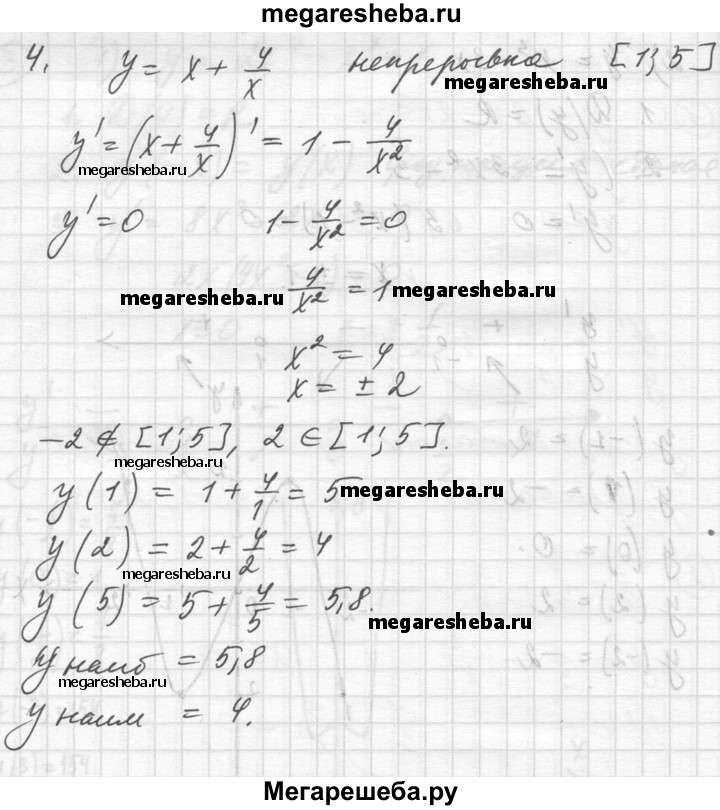 megaresheba.ru
4. y = x + 4/x непрерывна [1; 5]
megaresheba.ru
y' = (x + 4/x)' = 1 - 4/x²
megaresheba.ru
y' = 0 1 - 4/x² = 0
megaresheba.ru 4/x² = 1 megaresheba.ru
x² = 4
x = ± 2
-2 ∉ [1; 5], 2 ∈ [1; 5].
megaresheba.ru
y(1) = 1 + 4/1 = 5 megaresheba.ru
y(2) = 2 + 4/2 = 4
megaresheba.ru
y(5) = 5 + 4/5 = 5,8.
megaresheba.ru
y наиб = 5,8
megaresheba.ru
y наим = 4.
Мегарешеба.ру